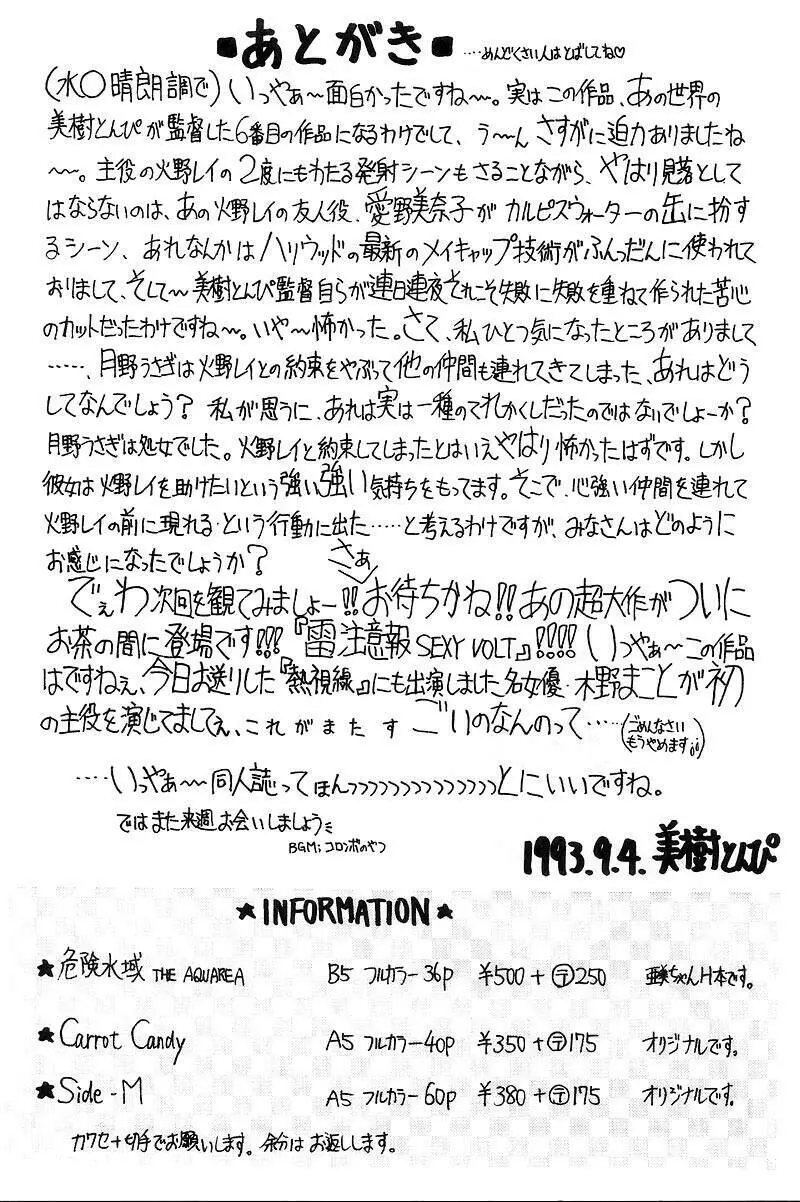 ■あとがき■ ‥‥めんどくさい人はとばしてね♡
(水〇晴朗調で)いっやぁ〜面白かったですね〜。実はこの作品、あの世界の
美樹とんぴが監督した6番目の作品になるわけでして、う〜ん さすがに迫力ありましたね
〜〜。主役の火野レイの2度にもわたる発射シーンもさることながら、やはり見落として
はならないのは、あの火野レイの友人役、愛野美奈子がカルピスウォーターの缶に扮す
るシーン、あれなんかはハリウッドの最新のメイキャップ技術がふんっだんに使われて
おりまして、そして〜美樹とんぴ監督自らが連日連夜それこそ失敗に失敗を重ねて作られた苦心
のカットだったわけですね〜。いや〜怖かった。さて、私ひとつ気になったところがありまして
‥‥‥、月野うさぎは火野レイとの約束をやぶって他の仲間も連れてきてしまった、あれはどう
してなんでしょう? 私が思うに、あれは実は一種のてれかくしだったのではないでしょーか?
月野うさぎは処女でした。火野レイと約束してしまったとはいえやはり怖かったはずです。しかし
彼女は火野レイを助けたいという強い強い気持ちをもってます。そこで、心強い仲間を連れて
火野レイの前に現れる・という行動に出た‥‥‥と考えるわけですが、みなさんはどのように
お感じになったでしょうか?
さあ
でぇわ次回を観てみましょー!!お待ちかね!!あの超大作がついに
お茶の間に登場です!!!『雷注意報 SEXY VOLT』!!!!いっやぁ〜この作品
はですねぇ、今日お送りした『熱視線』にも出演しました名女優・木野まことが初
の主役を演じてましてぇ、これがまたすごいのなんのって‥‥‥(ごめんなさい もうやめます)
‥‥いっやぁ〜〜同人誌ってほんっっっっっっっっっっっっっっとにいいですね。
ではまた来週お会いしましょう
BGM;コロンボのやつ
1993.9.4. 美樹とんぴ
★INFORMATION★
★危険水域 THE AQUAREA B5 フルカラー36p ¥500+〒250 亜美ちゃんH本です。
★Carrot Candy A5 フルカラー40p ¥350+〒175 オリジナルです。
★Side-M A5 フルカラー60p ¥380+〒175 オリジナルです。
カワセ+切手でお願いします。余分はお返しします。